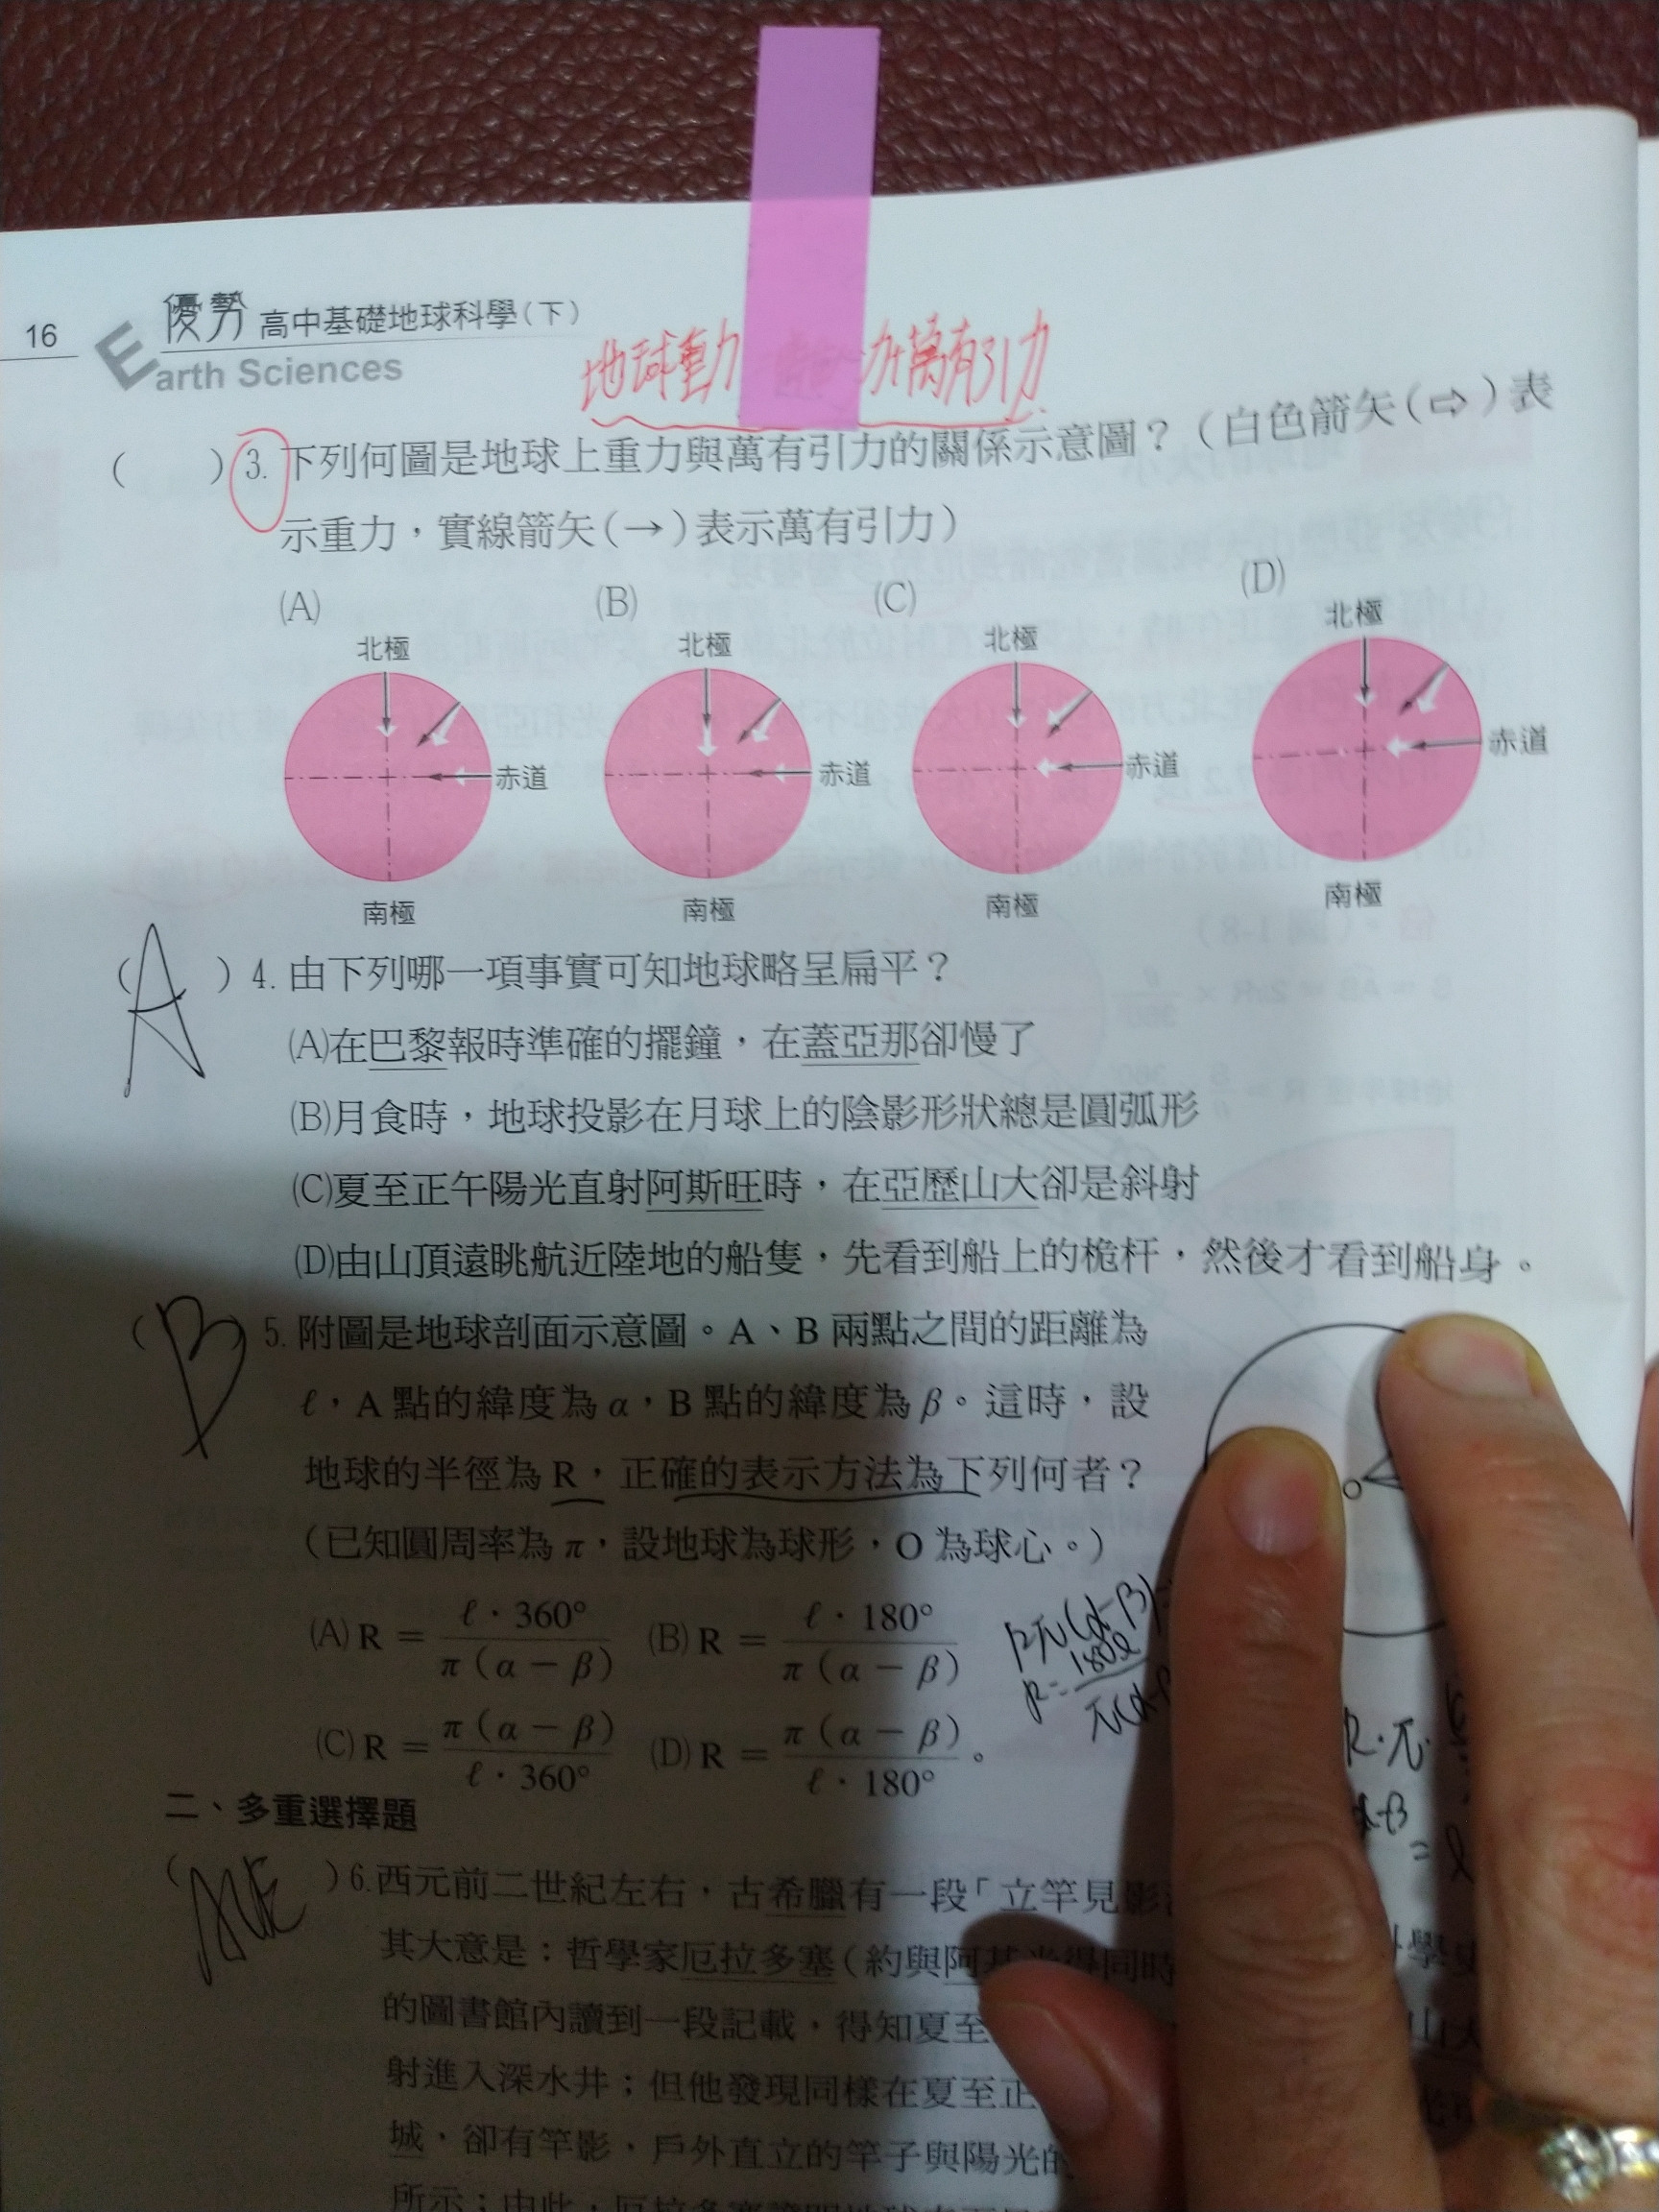 16
優勢 高中基礎地球科學(下)
Earth Sciences
地球重力 力+萬有引力
( )3. 下列何圖是地球上重力與萬有引力的關係示意圖？（白色箭矢(⇨)表
示重力，實線箭矢(→)表示萬有引力）
(A) (B) (C) (D)
北極 北極 北極 北極
赤道 赤道 赤道 赤道
南極 南極 南極 南極
( A )4. 由下列哪一項事實可知地球略呈扁平？
(A)在巴黎報時準確的擺鐘，在蓋亞那卻慢了
(B)月食時，地球投影在月球上的陰影形狀總是圓弧形
(C)夏至正午陽光直射阿斯旺時，在亞歷山大卻是斜射
(D)由山頂遠眺航近陸地的船隻，先看到船上的桅杆，然後才看到船身。
( B )5. 附圖是地球剖面示意圖。A、B 兩點之間的距離為
ℓ，A 點的緯度為 α，B 點的緯度為 β。這時，設
地球的半徑為 R，正確的表示方法為下列何者？
（已知圓周率為 π，設地球為球形，O 為球心。）
O
(A) R = ℓ · 360° / π ( α − β ) (B) R = ℓ · 180° / π ( α − β )
(C) R = π ( α − β ) / ℓ · 360° (D) R = π ( α − β ) / ℓ · 180° 。
Rπ(α-β)
R = 180ℓ / π(α-β
R·π·
α-β
= ℓ
二、多重選擇題
( )6. 西元前二世紀左右，古希臘有一段「立竿見影
其大意是：哲學家厄拉多塞（約與阿基米得同時
的圖書館內讀到一段記載，得知夏至
射進入深水井；但他發現同樣在夏至正
城，卻有竿影，戶外直立的竿子與陽光的
所示；由此，厄拉多塞